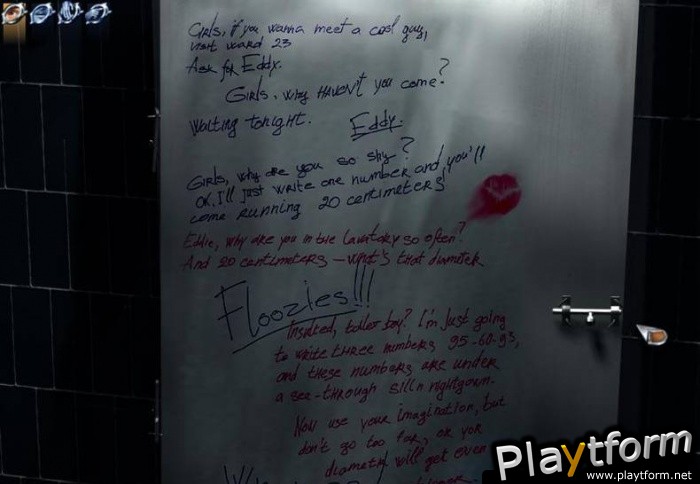 Girls, if you wanna meet a cool guy,
visit ward 23
Ask for Eddy.
Girls, why HAVEN't you come?
Waiting tonight. Eddy.
Girls, why are you so shy?
OK. I'll just write one number and you'll
come running 20 centimeters
Eddie, why are you in the lavatory so often?
And 20 centimeters – what's that, diameter
Floozies!!!
Insulted, toilet boy? I'm just going
to write three numbers 95-60-95,
and these numbers are under
a see-through silk nightgown.
Now use your imagination, but
don't go too far, or your
diameter will get even
Playtform
www.playtform.net